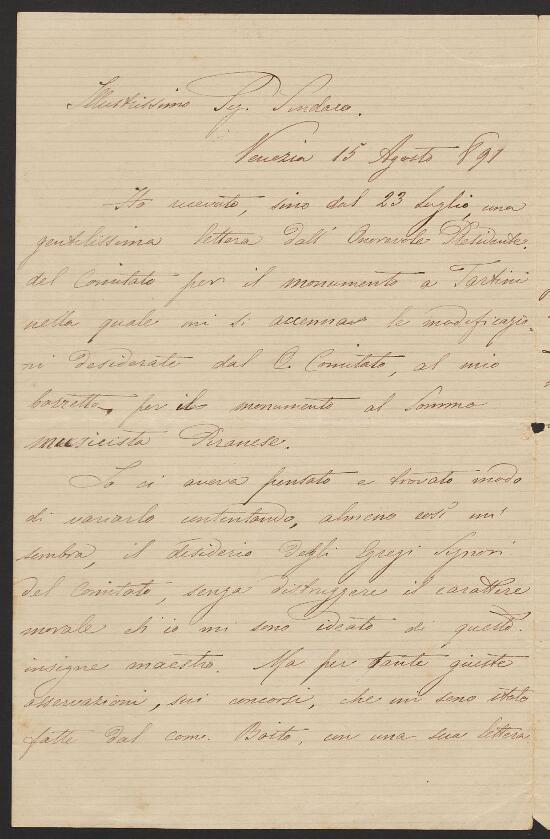 Illustrissimo Sig. Sindaco.
Venezia 15 Agosto 891
Ho ricevuto, sino dal 23 luglio, una
gentilissima lettera dall' Onorevole Presidente
del Comitato per il monumento a Tartini
nella quale mi si accennano le modificazio-
ni desiderate dal O. Comitato, al mio
bozzetto, per il monumento al Sommo
musicista Piranese.
Io ci aveva pensato e trovato modo
di variarlo contentando, almeno così mi
sembra, il desiderio degli Egregi Signori
del Comitato, senza distruggere il carattere
morale ch'io mi sono ideato di questo
insigne maestro. Ma per tante giuste
osservazioni, sui concorsi, che mi sono state
fatte dal com. Boito, con una sua lettera